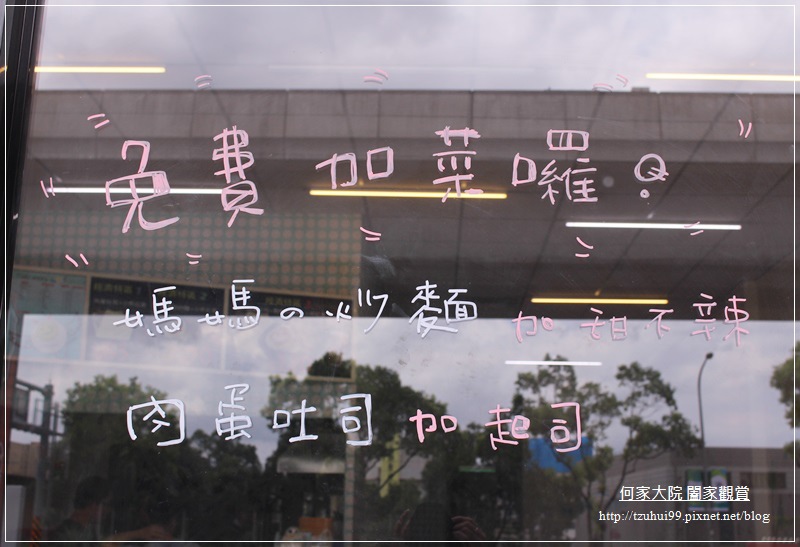 免費加菜囉!
媽媽の炒麵 加甜不辣
肉蛋吐司 加起司
何家大院 闔家觀賞
http://tzuhui99.pixnet.net/blog